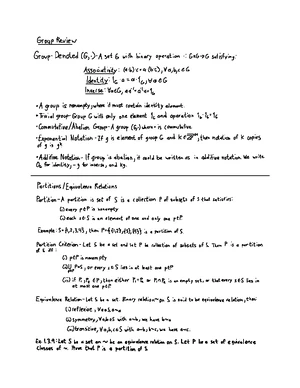 Group Review
Group- Denoted (G,·)- A set G with binary operation ·: G×G→G satisfying:
Associativity: (a·b)·c = a·(b·c), ∀a,b,c∈G
Identity: 1G·a = a·1G, ∀a∈G
Inverse: ∀a∈G,
• A group is nonempty, where it must contain identity element.
• Trivial group- Group with only one element 1G and operation 1G·1G=1G
• Commutative/Abelian Group- A group (G,·) where · is commutative.
• Exponential Notation- If g is element of group G and k∈ then notation of k copies
of g is gᵏ
• Additive Notation- If group is abelian, it could be written as in additive notation. We write
0G for identity, -g for inverse, and kg.
Partitions/Equivalence Relations
Partition- A partition in set of S is a collection P of subsets of S that satisfies:
(i) every p∈P is nonempty
(ii) each s∈S is an element of one and only one p∈P
Example: S={1,2,3,4}, then P={ is a partition of S.
Partition Criterion- Let S be a set and let P be collection of subsets of S. Then P is a partition
of S iff:
(i) p∈P is nonempty
(ii) =S, or every s∈S lies in at least one p∈P
(iii) if P₁,P₂∈P, then either P₁=P₂ or P₁∩P₂ is an empty set, or that every s∈S lies in
at most one p∈P
Equivalence Relation- Let S be a set. Binary relation ~ on S is said to be equivalence relation, then:
(i) reflexive, ∀a∈S, a~a
(ii) symmetry, ∀a,b∈S with a~b, we have b~a
(iii) transitive, ∀a,b,c∈S with a~b, b~c, we have a~c.
Ex 1.3.9: Let S be a set an ~ be an equivalence relation on S. Let P be a set of equivalence
classes of ~. Prove that P is a partition of S